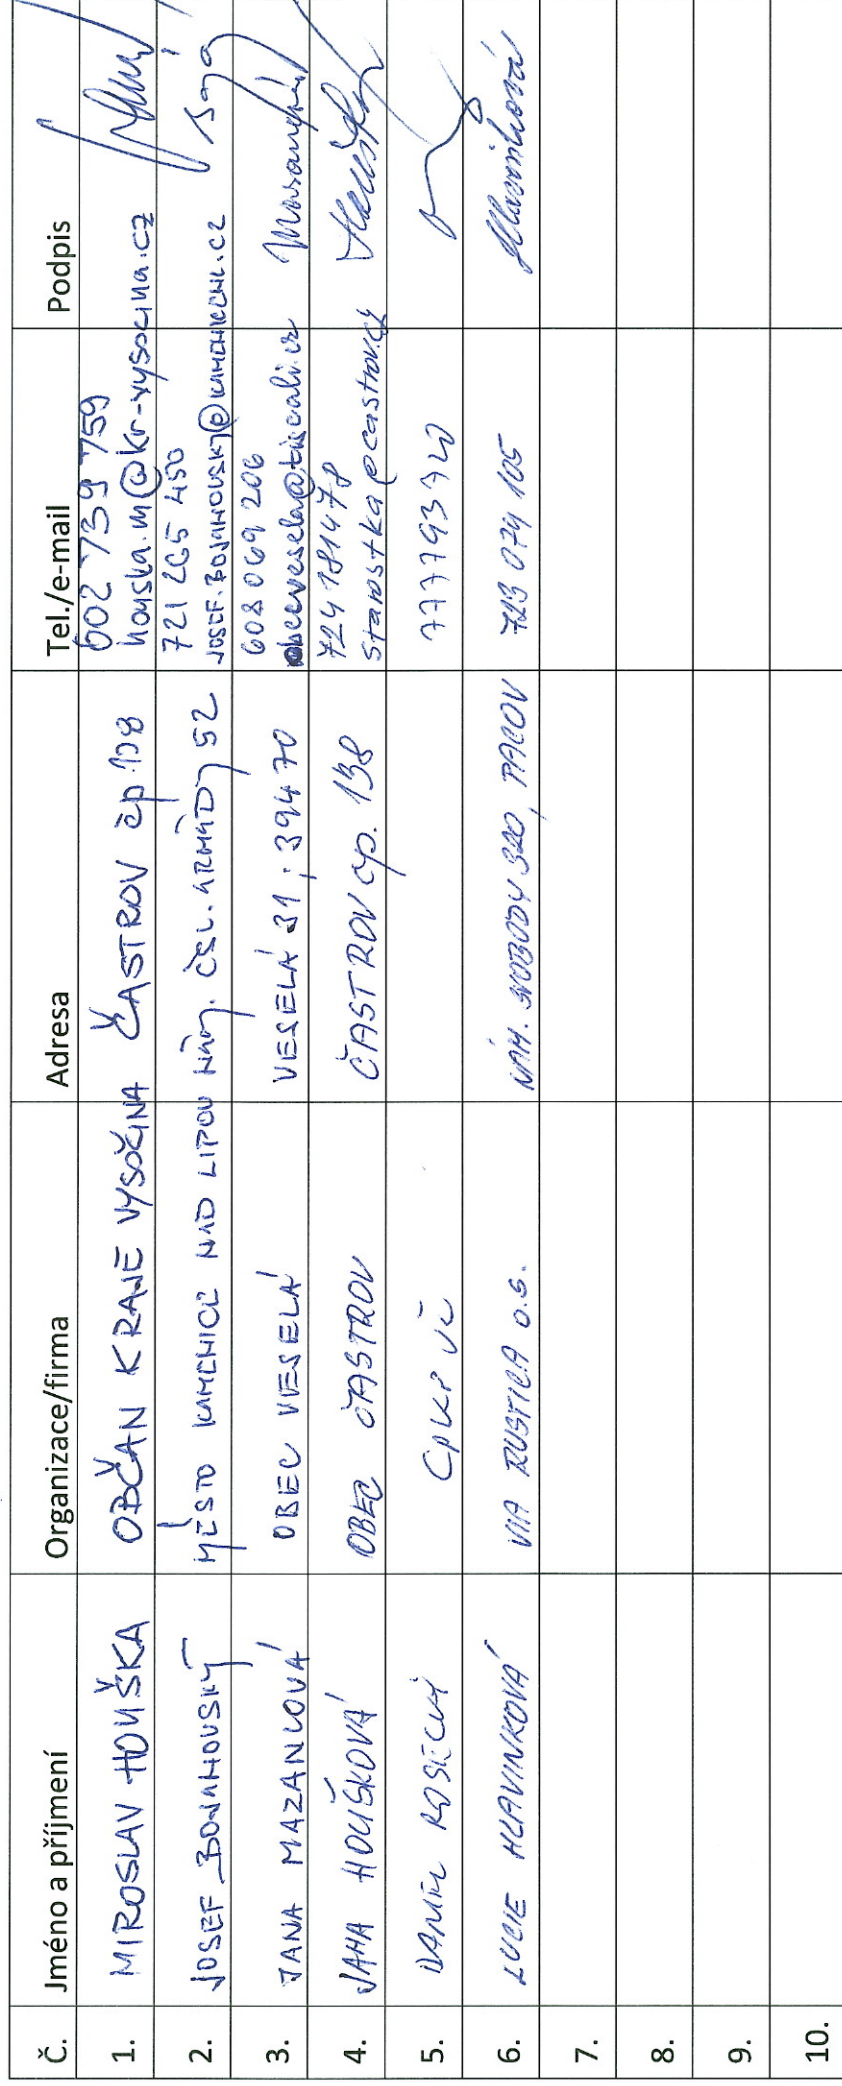 Č. Jméno a příjmení Organizace/firma Adresa Tel./e-mail Podpis
1. MIROSLAV HOUŠKA OBČAN KRAJE VYSOČINA ČASTROV čp. 138 602 739 759
houska.m@kr-vysocina.cz
2. JOSEF BOJANOVSKÝ MĚSTO KAMENICE NAD LIPOU NÁM. ČSL. ARMÁDY 52 721 265 450
JOSEF.BOJANOVSKY@KAMENICENL.CZ
3. JANA MAZANCOVÁ OBEC VESELÁ VESELÁ 31; 394 70 608 069 206
obecvesela@tiscali.cz Mazancová
4. JANA HOUŠKOVÁ OBEC ČASTROV ČASTROV čp. 138 724 181 478
starostka@castrov.cz Houšková
5. DANIEL
6. LUCIE HLAVINKOVÁ VIA RUSTICA o.s. NÁM. SVOBODY 320, PACOV 723 074 105 Hlavinková
7.
8.
9.
10.